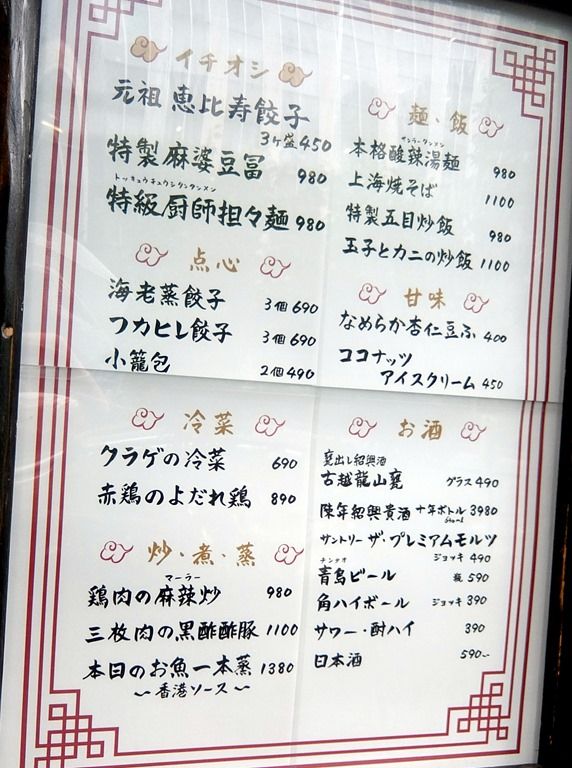 イチオシ
元祖 恵比寿餃子
3ヶ盛450
特製麻婆豆冨 980
トッキュウチュウシタンタンメン
特級厨師担々麺 980
点心
海老蒸餃子 3個690
フカヒレ餃子 3個690
小籠包 2個490
冷菜
クラゲの冷菜 690
赤鶏のよだれ鶏 890
炒・煮・蒸
マーラー
鶏肉の麻辣炒 980
三枚肉の黒酢酢豚 1100
本日のお魚一本蒸 1380
〜香港ソース〜
麺・飯
サンラータンメン
本格酸辣湯麺 980
上海焼そば 1100
特製五目炒飯 980
玉子とカニの炒飯 1100
甘味
なめらか杏仁豆ふ 400
ココナッツ
アイスクリーム 450
お酒
甕出し紹興酒
古越龍山甕 グラス490
陳年紹興貴酒 十年ボトル3980
サントリー ザ・プレミアムモルツ
ジョッキ490
チンタオ
青島ビール 瓶590
角ハイボール ジョッキ390
サワー・酎ハイ 390
日本酒 590〜